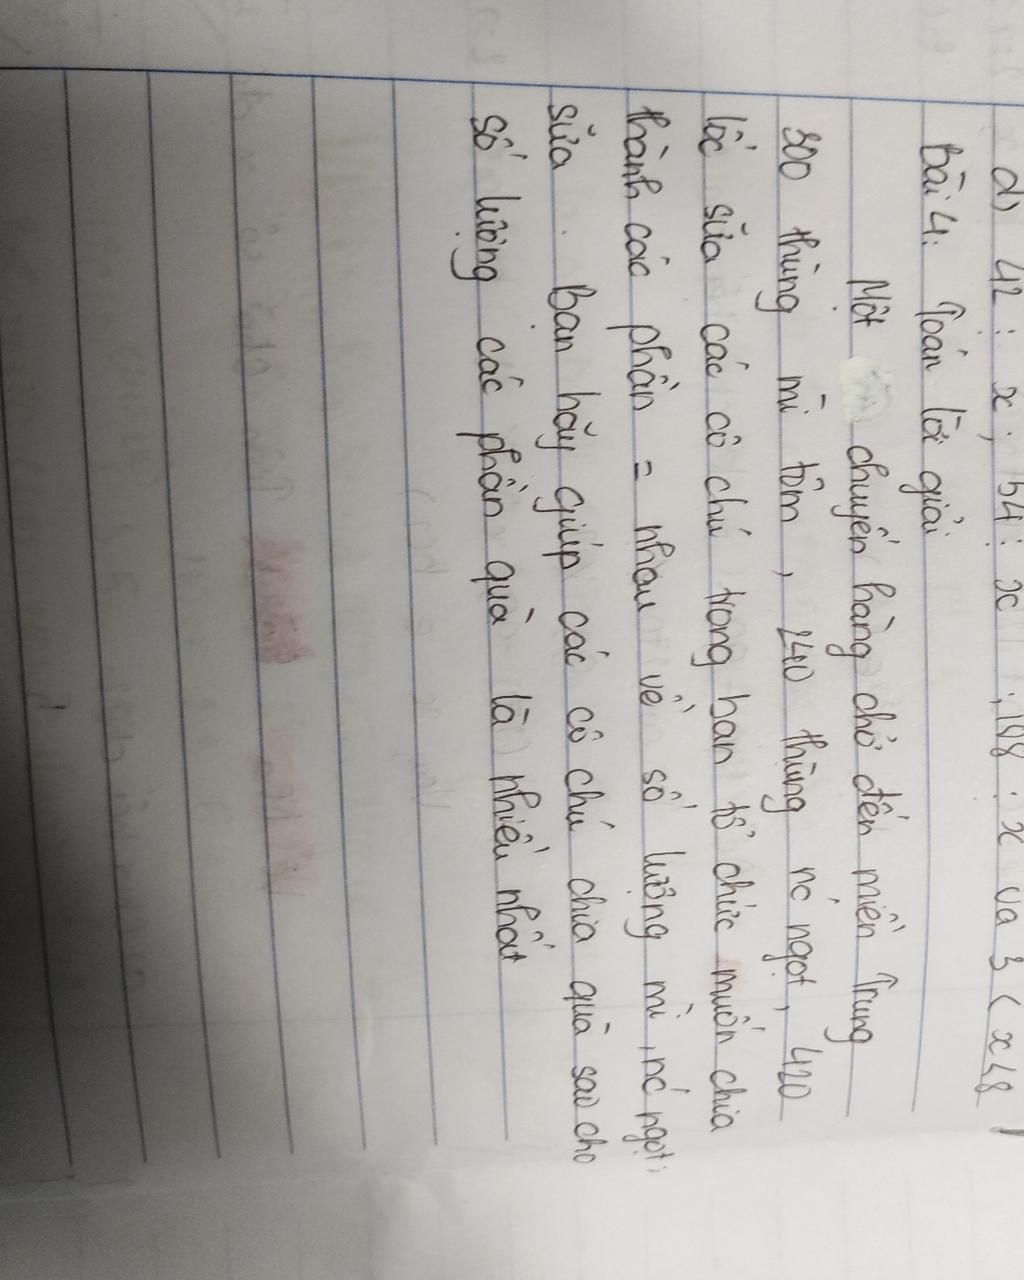 d) 42 : x ; 54 : x ; 108 : x và 3 < x < 8
Bài 4: Toán lời giải
Một chuyến hàng chở đến miền Trung
300 thùng mì tôm, 240 thùng nc ngọt, 420
lốc sữa các cô chú trong ban tổ chức muốn chia
thành các phần = nhau về số lượng mì, nc ngọt,
sữa. Bạn hãy giúp các cô chú chia quà sao cho
số lượng các phần quà là nhiều nhất